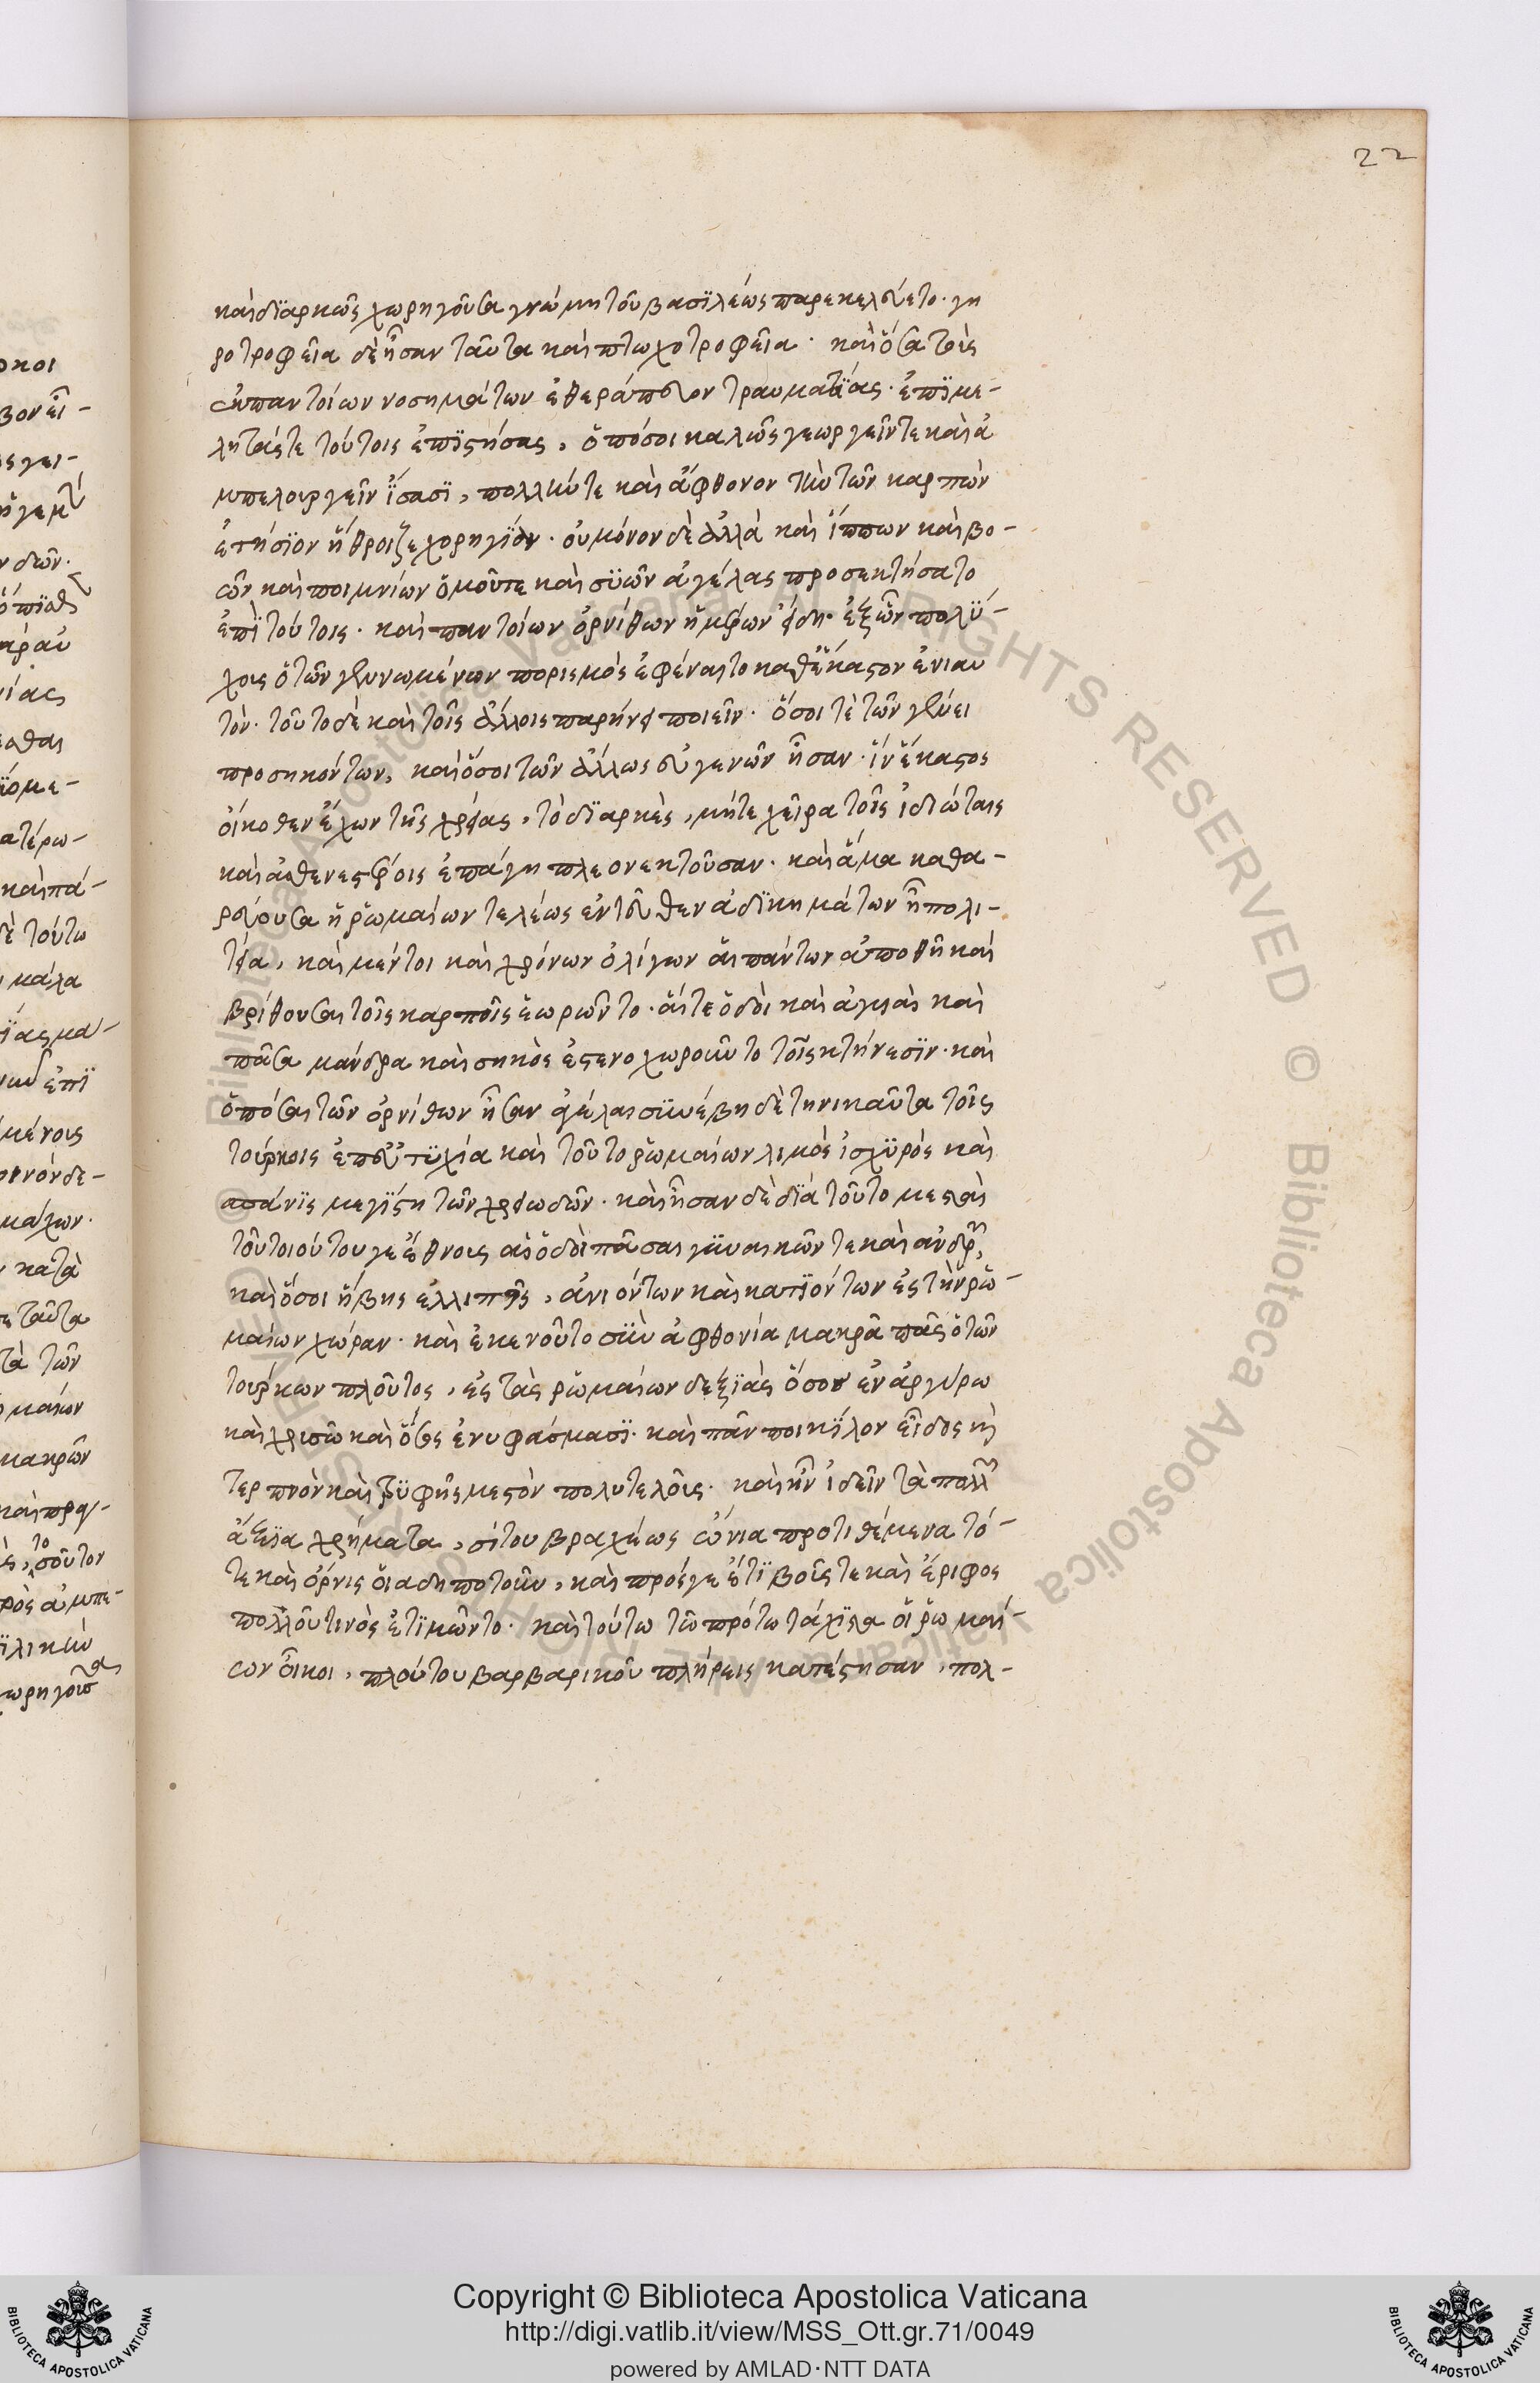 22
καὶ διαρκῶς χωρηγοῦσα γνώμη τοῦ βασϊλέως παρεκελεύετο· γη
ροτροφεῖα δὲ ἦσαν ταῦτα καὶ πτωχοτροφεῖα· καὶ ὅσα τοὺς
ἐκ παντοίων νοσημάτων ἐθεράπευον τραυματϊάς· ἐπϊμε-
λητάς τε τούτοις ἐπϊστήσας, ὁπόσοι καλῶς γεωργεῖν τε καὶ ἀ
μπελουργεῖν ἴσασϊ, πολλήν τε καὶ ἄφθονον τὴν τῶν καρπών
ἐτήσϊον ἤθροιζε χορηγϊάν· οὐ μόνον δὲ ἀλλὰ καὶ ἵππων καὶ βο-
ῶν καὶ ποιμνίων ὁμοῦτε καὶ συῶν ἀγέλας προσεκτήσατο
ἐπϊ τούτοις· καὶ παντοίων ὀρνίθων ἡμέρων εἴδη· ἐξ ὧν πολύ-
χους ὁ τῶν γεννωμένων πορισμός ἐφένατο καθ ἕκαστον ἐνιαυ
τόν· τοῦτο δὲ καὶ τοῖς ἄλλοις παρήνει ποιεῖν· ὅσοι τὲ τῶν γένει
προσηκόντων, καὶ ὅσοι τῶν ἄλλως εὐγενῶν ἦσαν· ἵν ἕκαστος
οἴκοθεν ἔχων τῆς χρείας, τὸ δϊαρκὲς, μήτε χεῖρα τοῖς ἰδιώταις
καὶ ἀσθενεστέροις ἐπάγη πλεονεκτοῦσαν· καὶ ἅμα καθα-
ρεύουσα ἡ ῥωμαίων τελέως ἐντεῦθεν ἀδϊκημάτων ἦ πολι-
τεία, καὶ μέντοι καὶ χρόνων ὀλίγων αἱ πάντων ἀποθῆκαι
βρίθουσαι τοῖς καρποῖς ἑωρῶντο· αἵτε ὁδοὶ καὶ ἀγυιαὶ καὶ
πᾶσα μάνδρα καὶ σηκὸς ἐστενοχωροῦντο τοῖς κτήνεσϊν· καὶ
ὁπόσαι τῶν ὀρνίθων ἦσαν ἀγέλαι συνέβη δὲ τηνικαῦτα τοῖς
τούρκοις ἐπ εὐτϋχία καὶ τοῦτο ῥωμαίων λιμός ἰσχϋρός καὶ
σπάνϊς μεγϊστη τῶν χρειωδῶν· καὶ ἦσαν δὲ δϊά τοῦτο μεσταὶ
τοῦ τοιούτου γε ἔθνους αἱ ὁδοὶ πᾶσαι γϋναικῶν τε καὶ ἀνδρῶν,
καὶ ὅσοι ἥβης ἐλλιπεῖς, ἀνιόντων καὶ κατϊόντων ἐς τὴν ῥω-
μαίων χώραν· καὶ ἐκενοῦτο σὺν ἀφθονία μακρᾶ πᾶς ὁ τῶν
τούρκων πλοῦτος, ἐς τὰς ῥωμαίων δεξϊὰς ὅσος ἐν ἀργύρω
καὶ χρυσῶ καὶ ὅσος ἐν ὑφάσμασϊ· καὶ πᾶν ποικϊλον εἶδος καὶ
τερπνὸν καὶ τρϋφῆς μεστόν πολυτελοῦς· καὶ ἦν ἰδεῖν τὰ πολλοῦ
ἄξϊα χρήματα, σίτου βραχέως ὤνια προτιθέμενα τό-
τε καὶ ὄρνις οἱαδηποτοῦν, καὶ πρός γε ἔτϊ βοῦς τε καὶ ἔριφος
πολλοῦ τινὸς ἐτϊμῶντο· καὶ τούτω τῶ πρότω τάχϊστα οἱ ῥωμαί-
ων οἶκοι, πλούτου βαρβαρικοῦ πλήρεις κατέστησαν, πολ-
Copyright © Biblioteca Apostolica Vaticana
http://digi.vatlib.it/view/MSS_Ott.gr.71/0049
powered by AMLAD·NTT DATA